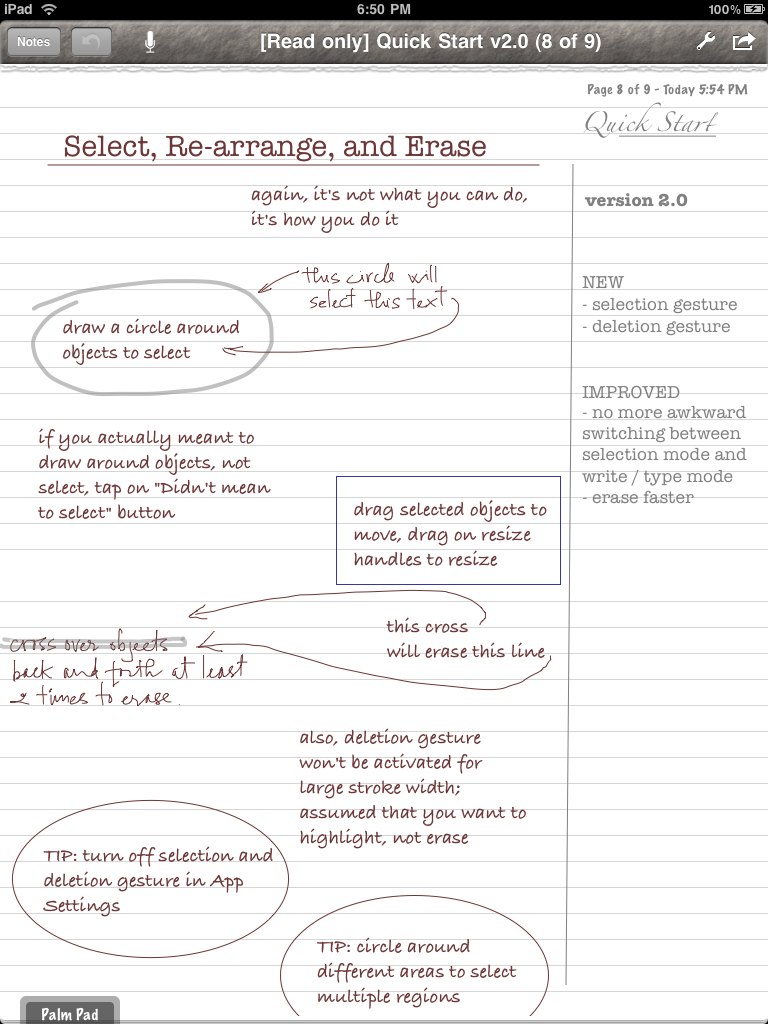 iPad 6:50 PM 100%
Notes [Read only] Quick Start v2.0 (8 of 9)
Page 8 of 9 - Today 5:54 PM
Quick Start
Select, Re-arrange, and Erase
again, it's not what you can do,
it's how you do it
version 2.0
this circle will
select this text
NEW
- selection gesture
- deletion gesture
draw a circle around
objects to select
IMPROVED
- no more awkward
switching between
selection mode and
write / type mode
- erase faster
if you actually meant to
draw around objects, not
select, tap on "Didn't mean
to select" button
drag selected objects to
move, drag on resize
handles to resize
this cross
will erase this line
cross over objects
back and forth at least
2 times to erase.
also, deletion gesture
won't be activated for
large stroke width;
assumed that you want to
highlight, not erase
TIP: turn off selection and
deletion gesture in App
Settings
TIP: circle around
different areas to select
multiple regions
Palm Pad